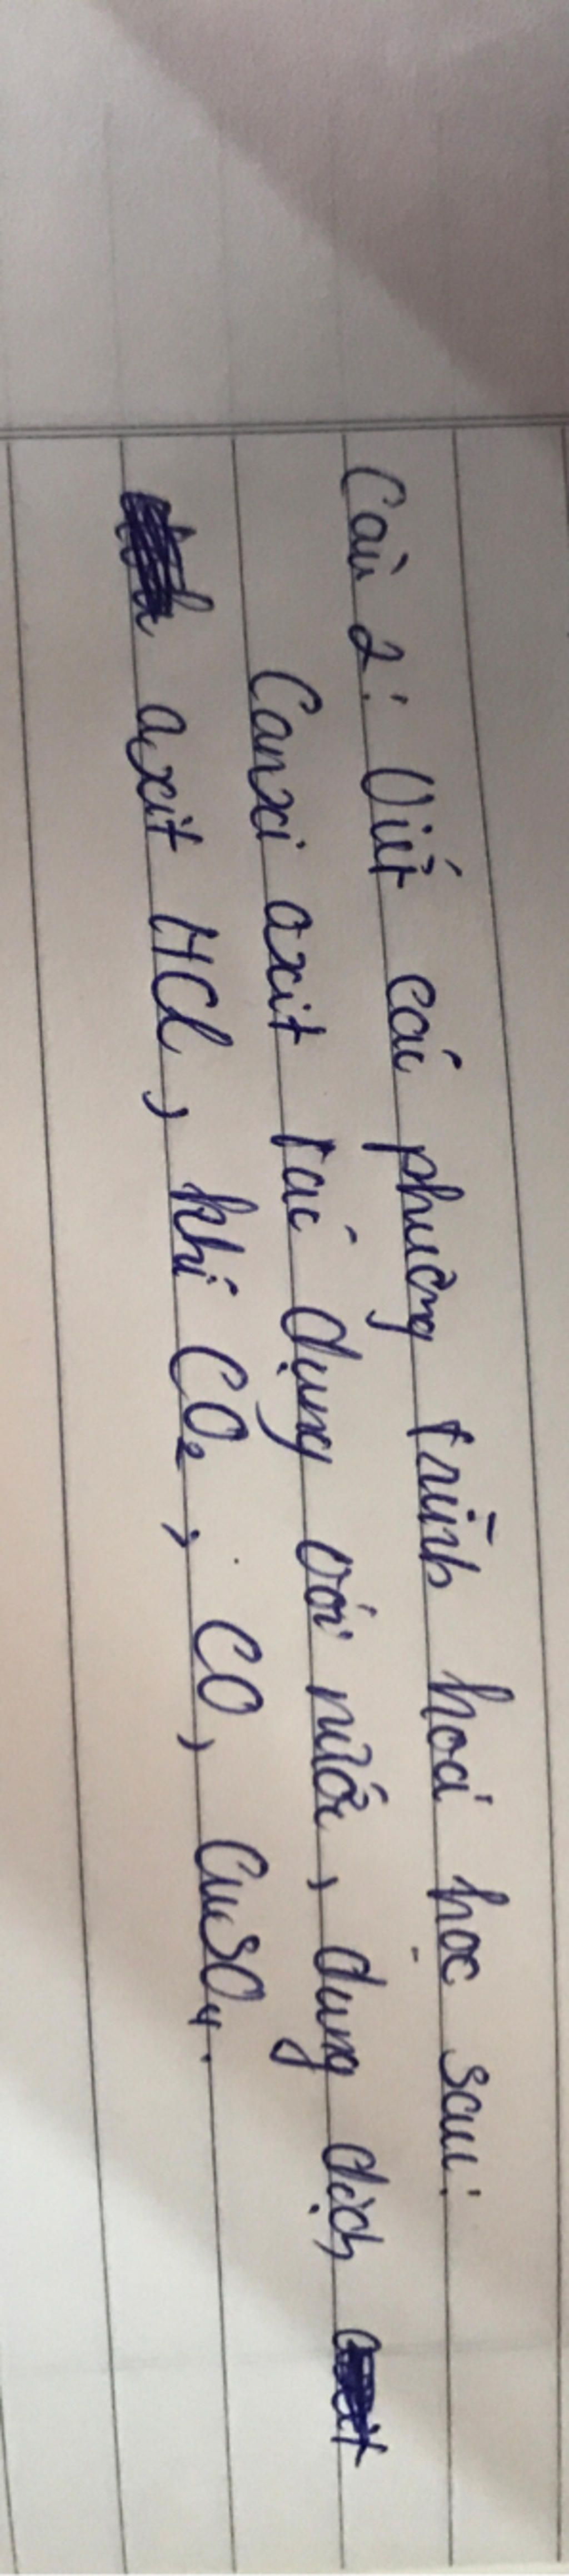 Câu 2: Viết các phương trình hoá học sau:
Canxi axit tác dụng với nước, dung dịch
axit HCl, khí CO₂, CO, CuSO₄.